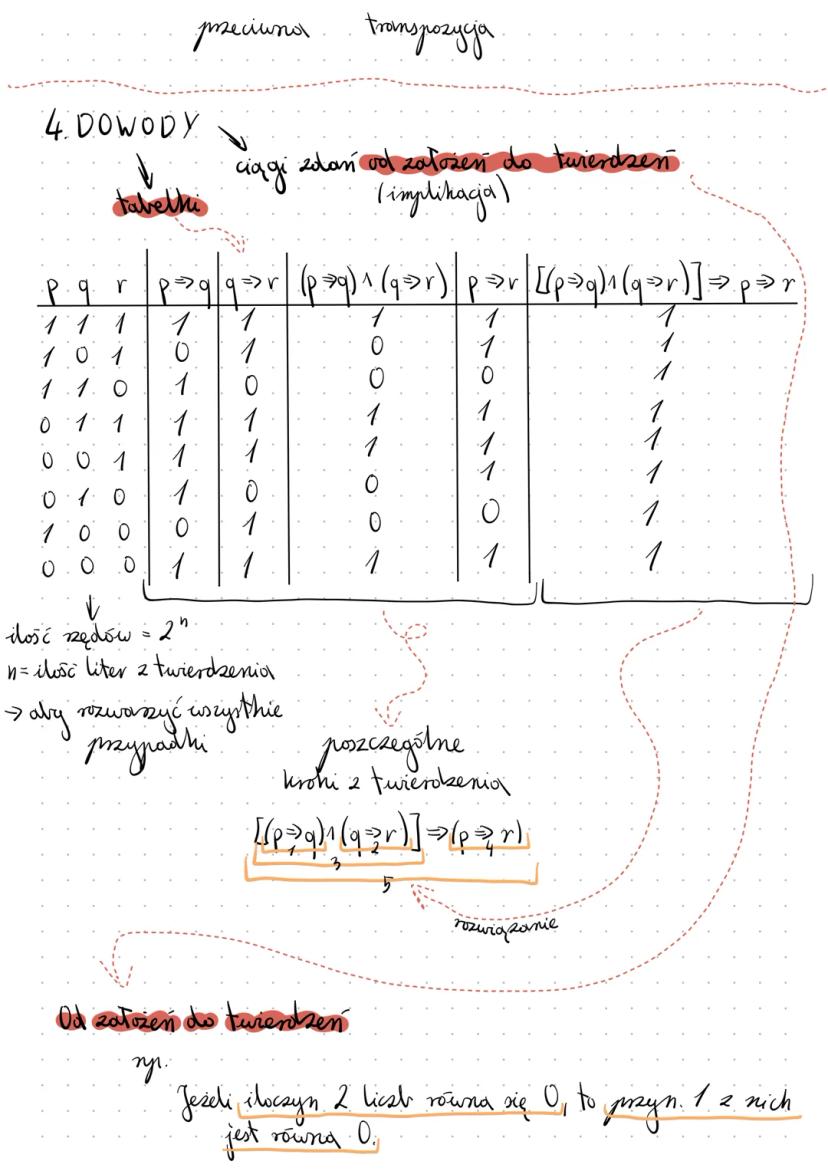 przeciwna transpozycja
4. DOWODY
ciągi zdań od założeń do twierdzeń
(implikacja)
tabelki
p q r p⇒q q⇒r (p⇒q)∧(q⇒r) p⇒r [(p⇒q)∧(q⇒r)]⇒ p⇒r
1 1 1 1 1 1 1 1
1 0 1 0 1 0 1 1
1 1 0 1 0 0 0 1
0 1 1 1 1 1 1 1
0 0 1 1 1 1 1 1
0 1 0 1 0 0 1 1
1 0 0 0 1 0 0 1
0 0 0 1 1 1 1 1
ilość rzędów = 2ⁿ
n = ilość liter z twierdzenia
→ aby rozważyć wszystkie
przypadki
poszczególne
kroki z twierdzenia
[(p⇒q)∧(q⇒r)]⇒(p⇒r)
1 2 4
3
5
rozwiązanie
Od założeń do twierdzeń
np.
Jeżeli iloczyn 2 liczb równa się 0, to przyn. 1 z nich
jest równa 0.